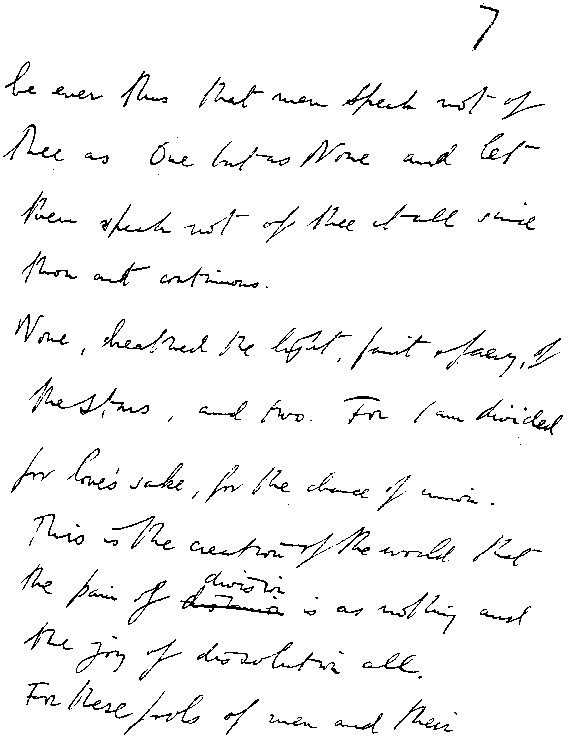 7
be ever thus that men speak not of
thee as One but as None and let
them speak not of thee at all since
thou art continuous.
None, breathed the light, faint & faery, of
the stars, and two. For I am divided
for love's sake, for the chance of union.
This is the creation of the world that
the pain of division is as nothing and
the joy of dissolution all.
For these fools of men and their